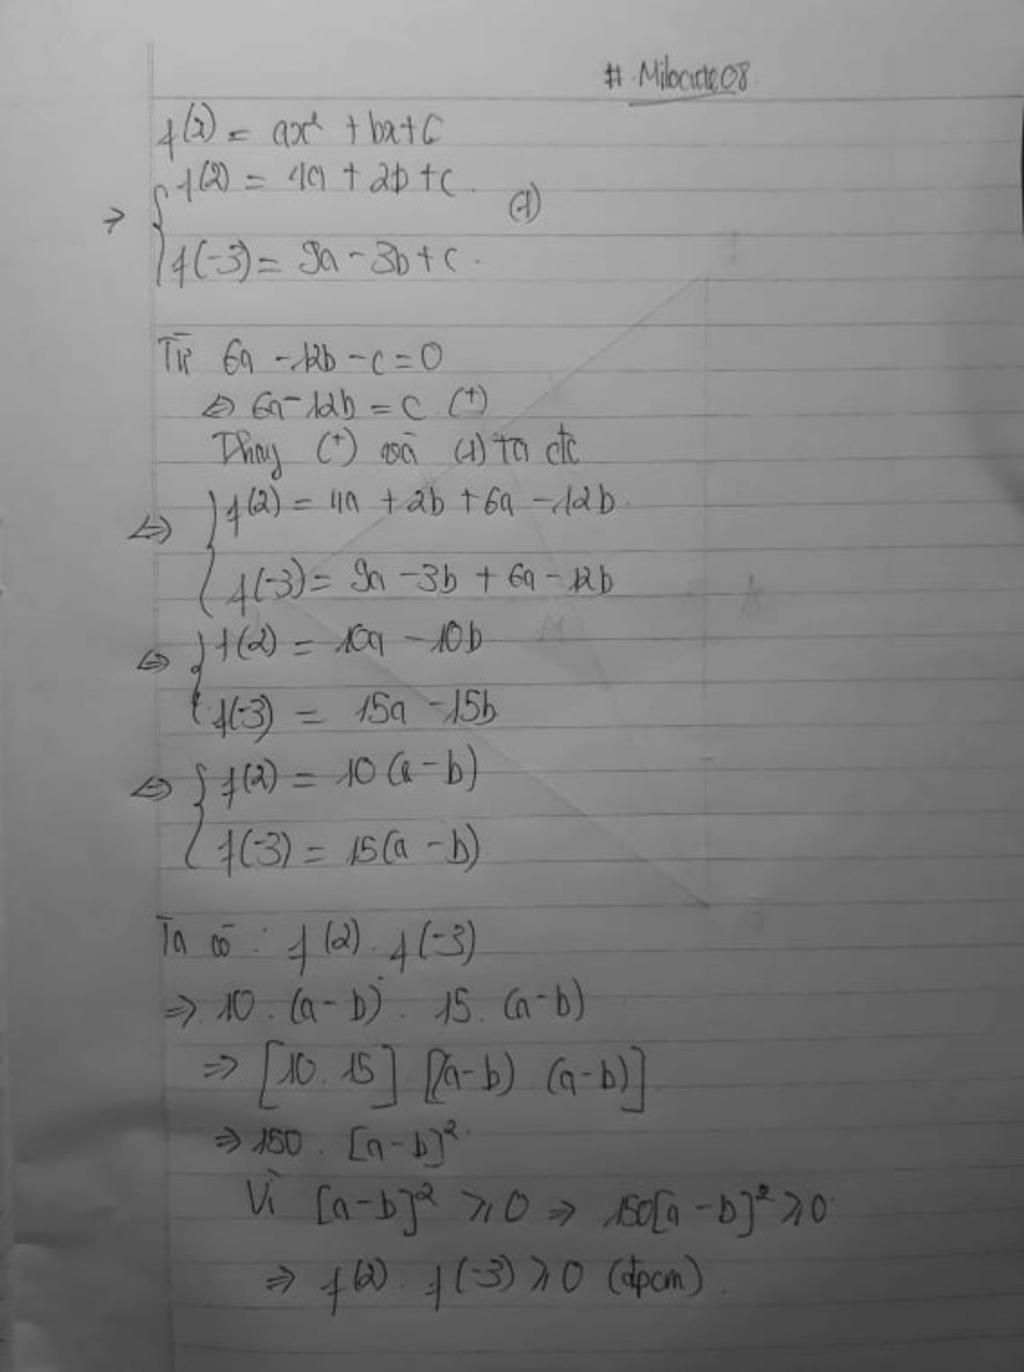 # Milocute08
f(x) = ax² + bx + c
⇒ { f(2) = 4a + 2b + c. (1)
f(-3) = 9a - 3b + c.
Từ 6a - 12b - c = 0
⇔ 6a - 12b = c (*)
Thay (*) vào (1) ta đc
⇔ { f(2) = 4a + 2b + 6a - 12b.
f(-3) = 9a - 3b + 6a - 12b
⇔ { f(2) = 10a - 10b
f(-3) = 15a - 15b
⇔ { f(2) = 10 (a - b)
f(-3) = 15(a - b)
Ta có : f(2) . f(-3)
⇒ 10 . (a - b) . 15 . (a - b)
⇒ [10 . 15] [(a - b) (a - b)]
⇒ 150 . [a - b]²
Vì [a - b]² ≥ 0 ⇒ 150[a - b]² ≥ 0
⇒ f(2) . f(-3) ≥ 0 (đpcm).